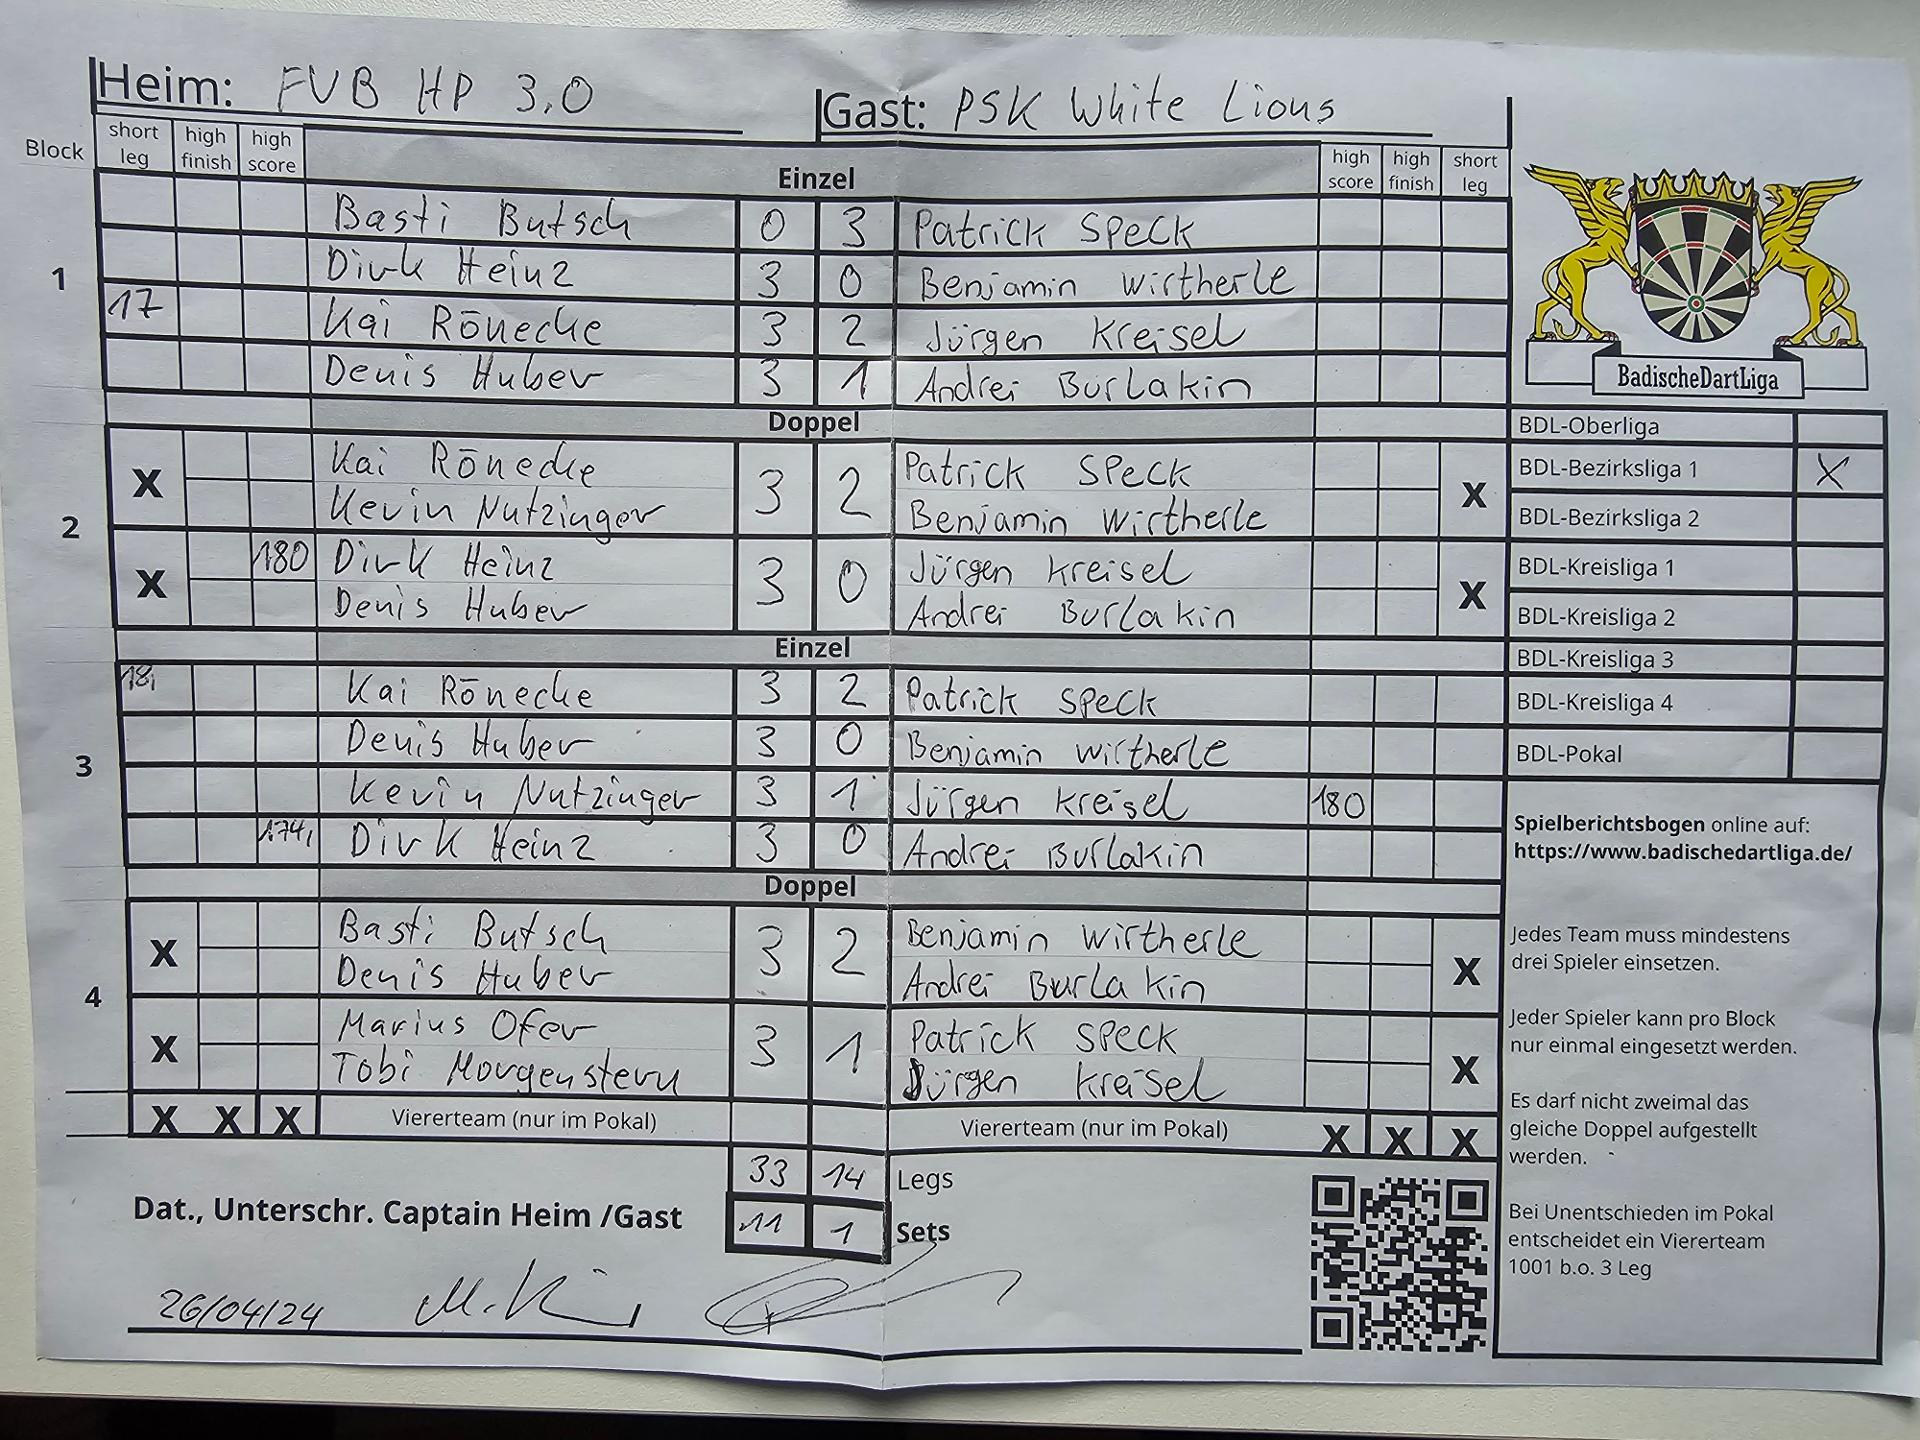 Heim: FVB HP 3.0 Gast: PSK White Lions
Block short leg high finish high score Einzel high score high finish short leg
1
Basti Butsch 0 3 Patrick Speck
Dirk Heinz 3 0 Benjamin Wirtherle
17 Kai Rönecke 3 2 Jürgen Kreisel
Denis Huber 3 1 Andrei Burlakin
Doppel
2
X Kai Rönecke 3 2 Patrick Speck X
Kevin Nutzinger Benjamin Wirtherle
X 180 Dirk Heinz 3 0 Jürgen Kreisel X
Denis Huber Andrei Burlakin
Einzel
3
18, Kai Rönecke 3 2 Patrick Speck
Denis Huber 3 0 Benjamin Wirtherle
Kevin Nutzinger 3 1 Jürgen Kreisel 180
174, Dirk Heinz 3 0 Andrei Burlakin
Doppel
4
X Basti Butsch 3 2 Benjamin Wirtherle X
Denis Huber Andrei Burlakin
X Marius Ofer 3 1 Patrick Speck X
Tobi Morgenstern Jürgen Kreisel
X X X Vierерteam (nur im Pokal) Viererteam (nur im Pokal) X X X
33 14 Legs
11 1 Sets
Dat., Unterschr. Captain Heim /Gast
26/04/24
BadischeDartLiga
BDL-Oberliga
BDL-Bezirksliga 1 X
BDL-Bezirksliga 2
BDL-Kreisliga 1
BDL-Kreisliga 2
BDL-Kreisliga 3
BDL-Kreisliga 4
BDL-Pokal
Spielberichtsbogen online auf:
https://www.badischedartliga.de/
Jedes Team muss mindestens
drei Spieler einsetzen.
Jeder Spieler kann pro Block
nur einmal eingesetzt werden.
Es darf nicht zweimal das
gleiche Doppel aufgestellt
werden.
Bei Unentschieden im Pokal
entscheidet ein Viererteam
1001 b.o. 3 Leg